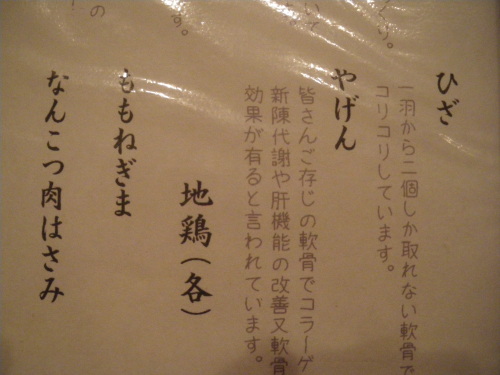 ひざ
一羽から二個しか取れない軟骨で
コリコリしています。
やげん
皆さんご存じの軟骨でコラーゲ
新陳代謝や肝機能の改善又軟骨
効果が有ると言われています。
地鶏(各)
ももねぎま
なんこつ肉はさみ